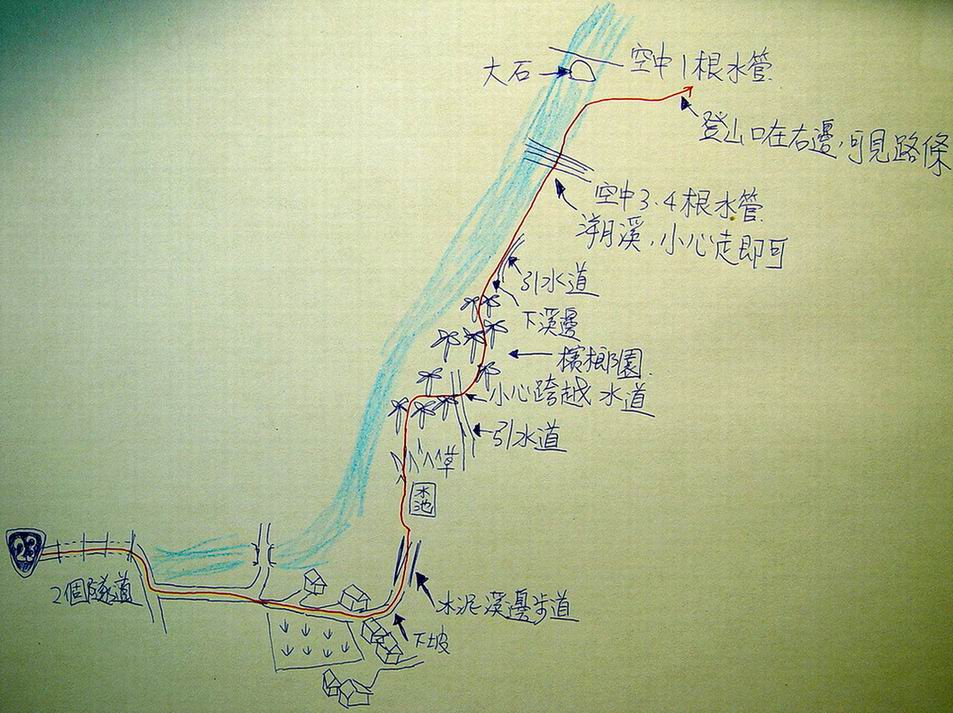 空中1根水管
大石
登山口在右邊,可見路條
空中3.4根水管
溯溪,小心走即可
引水道
下溪邊
檳榔園
小心跨越水道
引水道
草
水池
23
2個隧道
水泥溪邊步道
下坡